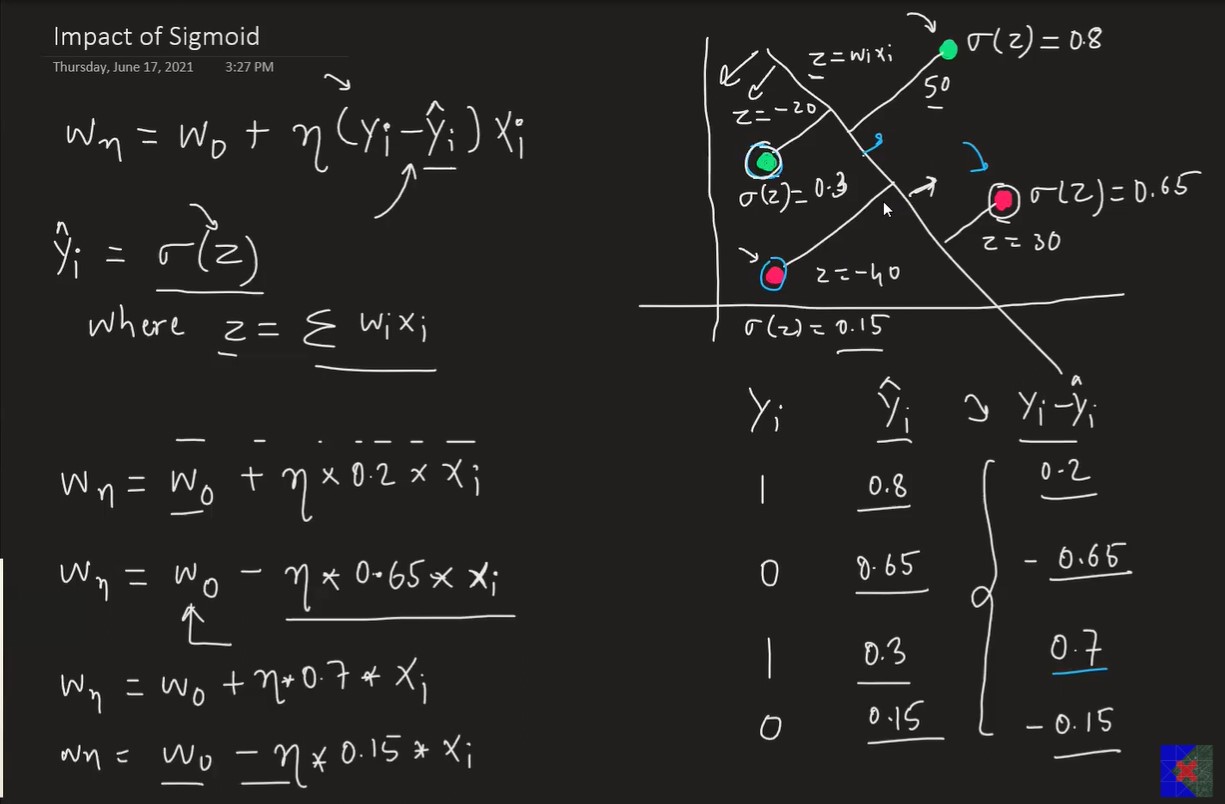 Impact of Sigmoid
Thursday, June 17, 2021 3:27 PM
wη = w₀ + η(yᵢ-ŷᵢ)xᵢ
ŷᵢ = σ(z)
where z = Σ wᵢxᵢ
wη = w₀ + η × 0.2 × xᵢ
wη = w₀ - η * 0.65 * xᵢ
wη = w₀ + η * 0.7 * xᵢ
wη = w₀ - η * 0.15 * xᵢ
z = wᵢxᵢ
σ(z) = 0.8
50
z = -20
σ(z) = 0.3
σ(z) = 0.65
z = 30
z = -40
σ(z) = 0.15
yᵢ ŷᵢ yᵢ-ŷᵢ
1 0.8 0.2
0 0.65 - 0.65
1 0.3 0.7
0 0.15 - 0.15